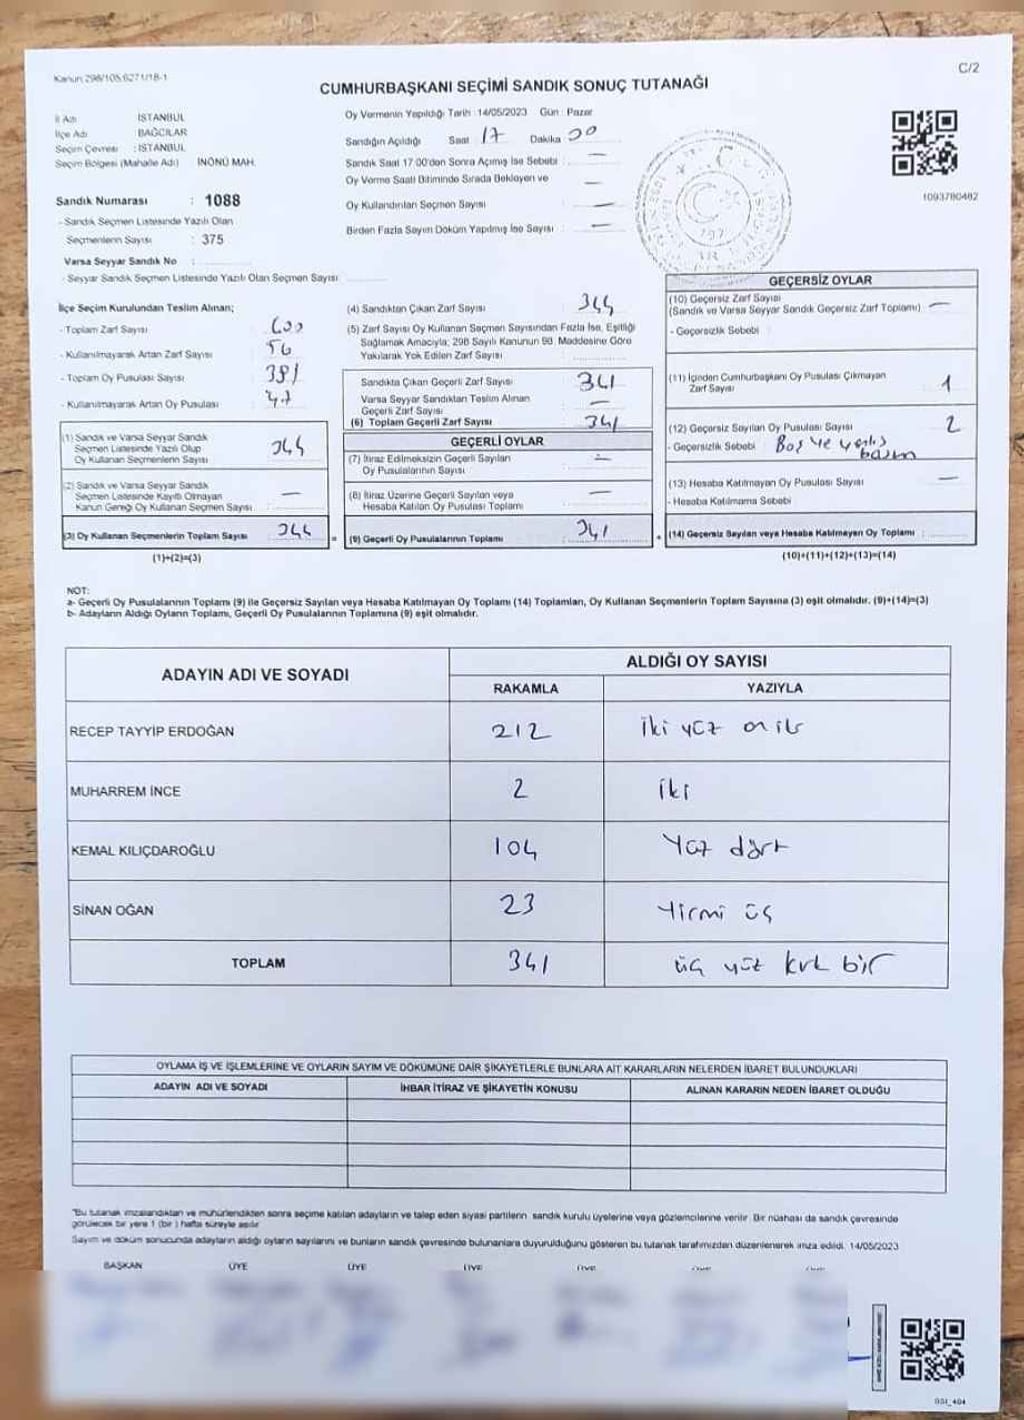 Kanun: 298/105,6271/18-1
C/2
CUMHURBAŞKANI SEÇİMİ SANDIK SONUÇ TUTANAĞI
İl Adı : İSTANBUL
İlçe Adı : BAĞCILAR
Seçim Çevresi : İSTANBUL
Seçim Bölgesi (Mahalle Adı) İNÖNÜ MAH.
Sandık Numarası : 1088
- Sandık Seçmen Listesinde Yazılı Olan
Seçmenlerin Sayısı : 375
Varsa Seyyar Sandık No :
- Seyyar Sandık Seçmen Listesinde Yazılı Olan Seçmen Sayısı:
Oy Vermenin Yapıldığı Tarih :14/05/2023 Gün : Pazar
Sandığın Açıldığı Saat 17 Dakika 00
Sandık Saat 17:00'den Sonra Açımış İse Sebebi : —
Oy Verme Saati Bitiminde Sırada Bekleyen ve —
Oy Kullandırılan Seçmen Sayısı : —
Birden Fazla Sayım Döküm Yapılmış İse Sayısı : —
1093780482
İlçe Seçim Kurulundan Teslim Alınan;
- Toplam Zarf Sayısı : 400
- Kullanılmayarak Artan Zarf Sayısı : 56
- Toplam Oy Pusulası Sayısı : 391
- Kullanılmayarak Artan Oy Pusulası : 47
(1) Sandık ve Varsa Seyyar Sandık
Seçmen Listesinde Yazılı Olup
Oy Kullanan Seçmenlerin Sayısı : 344
(2) Sandık ve Varsa Seyyar Sandık
Seçmen Listesinde Kayıtlı Olmayan
Kanun Gereği Oy Kullanan Seçmen Sayısı : —
(3) Oy Kullanan Seçmenlerin Toplam Sayısı : 344
(1)+(2)=(3)
(4) Sandıktan Çıkan Zarf Sayısı : 344
(5) Zarf Sayısı Oy Kullanan Seçmen Sayısından Fazla İse, Eşitliği
Sağlamak Amacıyla; 298 Sayılı Kanunun 98. Maddesine Göre
Yakılarak Yok Edilen Zarf Sayısı :
Sandıkta Çıkan Geçerli Zarf Sayısı : 341
Varsa Seyyar Sandıktan Teslim Alınan
Geçerli Zarf Sayısı : —
(6) Toplam Geçerli Zarf Sayısı : 341
GEÇERLİ OYLAR
(7) İtiraz Edilmeksizin Geçerli Sayılan
Oy Pusulalarının Sayısı : —
(8) İtiraz Üzerine Geçerli Sayılan veya
Hesaba Katılan Oy Pusulası Toplamı : —
= (9) Geçerli Oy Pusulalarının Toplamı : 341
GEÇERSİZ OYLAR
(10) Geçersiz Zarf Sayısı
(Sandık ve Varsa Seyyar Sandık Geçersiz Zarf Toplamı) : —
- Geçersizlik Sebebi :
(11) İçinden Cumhurbaşkanı Oy Pusulası Çıkmayan
Zarf Sayısı : 1
(12) Geçersiz Sayılan Oy Pusulası Sayısı : 2
- Geçersizlik Sebebi : Boş ve yanlış
basım
(13) Hesaba Katılmayan Oy Pusulası Sayısı : —
- Hesaba Katılmama Sebebi :
+ (14) Geçersiz Sayılan veya Hesaba Katılmayan Oy Toplamı :
(10)+(11)+(12)+(13)=(14)
NOT:
a- Geçerli Oy Pusulalarının Toplamı (9) ile Geçersiz Sayılan veya Hesaba Katılmayan Oy Toplamı (14) Toplamları, Oy Kullanan Seçmenlerin Toplam Sayısına (3) eşit olmalıdır. (9)+(14)=(3)
b- Adayların Aldığı Oyların Toplamı, Geçerli Oy Pusulalarının Toplamına (9) eşit olmalıdır.
ADAYIN ADI VE SOYADI
ALDIĞI OY SAYISI
RAKAMLA YAZIYLA
RECEP TAYYİP ERDOĞAN 212 İki yüz on iki
MUHARREM İNCE 2 iki
KEMAL KILIÇDAROĞLU 104 Yüz dört
SİNAN OĞAN 23 Yirmi üç
TOPLAM 341 üç yüz kırk bir
OYLAMA İŞ VE İŞLEMLERİNE VE OYLARIN SAYIM VE DÖKÜMÜNE DAİR ŞİKAYETLERLE BUNLARA AİT KARARLARIN NELERDEN İBARET BULUNDUKLARI
ADAYIN ADI VE SOYADI İHBAR İTİRAZ VE ŞİKAYETİN KONUSU ALINAN KARARIN NEDEN İBARET OLDUĞU
"Bu tutanak imzalandıktan ve mühürlendikten sonra seçime katılan adayların ve talep eden siyasi partilerin sandık kurulu üyelerine veya gözlemcilerine verilir. Bir nüshası da sandık çevresinde
görülecek bir yere 1 (bir) hafta süreyle asılır
Sayım ve döküm sonucunda adayların aldığı oyların sayılarını ve bunların sandık çevresinde bulunanlara duyurulduğunu gösteren bu tutanak tarafımızdan düzenlenerek imza edildi. 14/05/2023
BAŞKAN ÜYE ÜYE ÜYE ÜYE